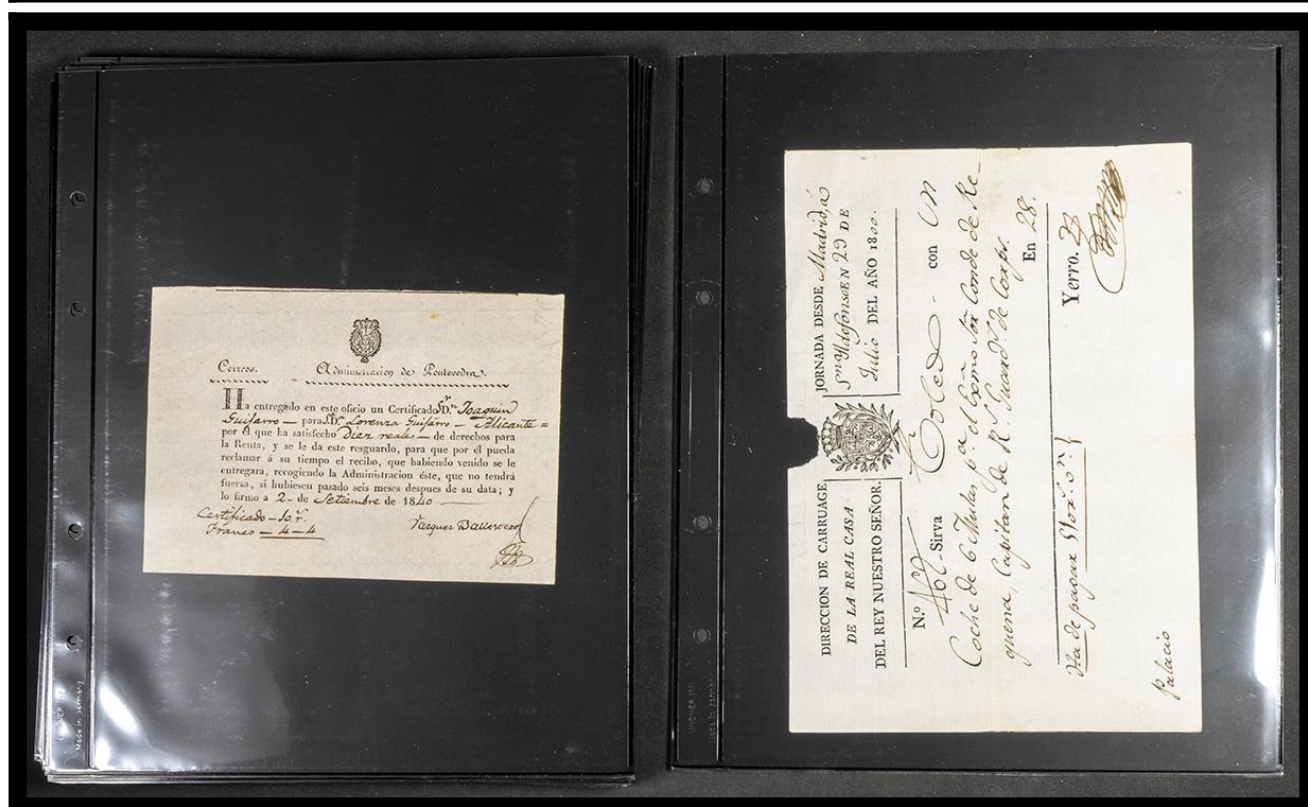 Correos. Administracion de Pontevedra.
Ha entregado en este oficio un Certificado Sr. Dn. Joaquin
Guijarro — para Sr. Dn. Lorenza Guijarro — Alicante =
por el que ha satisfecho Diez reales — de derechos para
la Renta, y se le da este resguardo, para que por él pueda
reclamar á su tiempo el recibo, que habiendo venido se le
entregará, recogiendo la Administracion éste, que no tendrá
fuerza, si hubiesen pasado seis meses despues de su data; y
lo firmo á 2 - de Setiembre de 1840
Certificado — 10 r.
Franco — 4 — 4
Vazquez
LINDNER
Made in Germany
DIRECCION DE CARRUAGE
DE LA REAL CASA
DEL REY NUESTRO SEÑOR.
JORNADA DESDE Madrid, á
Sn. Yldefonso EN 29 DE
Julio DEL AÑO 1800.
N.º - Sirva Toledo - con Un
Coche de 6 Mulas pa. el Exmo Sor. Conde de Re-
quena, Capitan de Rs. Guards. de Corps.
En 28.
Ha de pagar
Yerro.
Palacio
LINDNER
Made in Germany